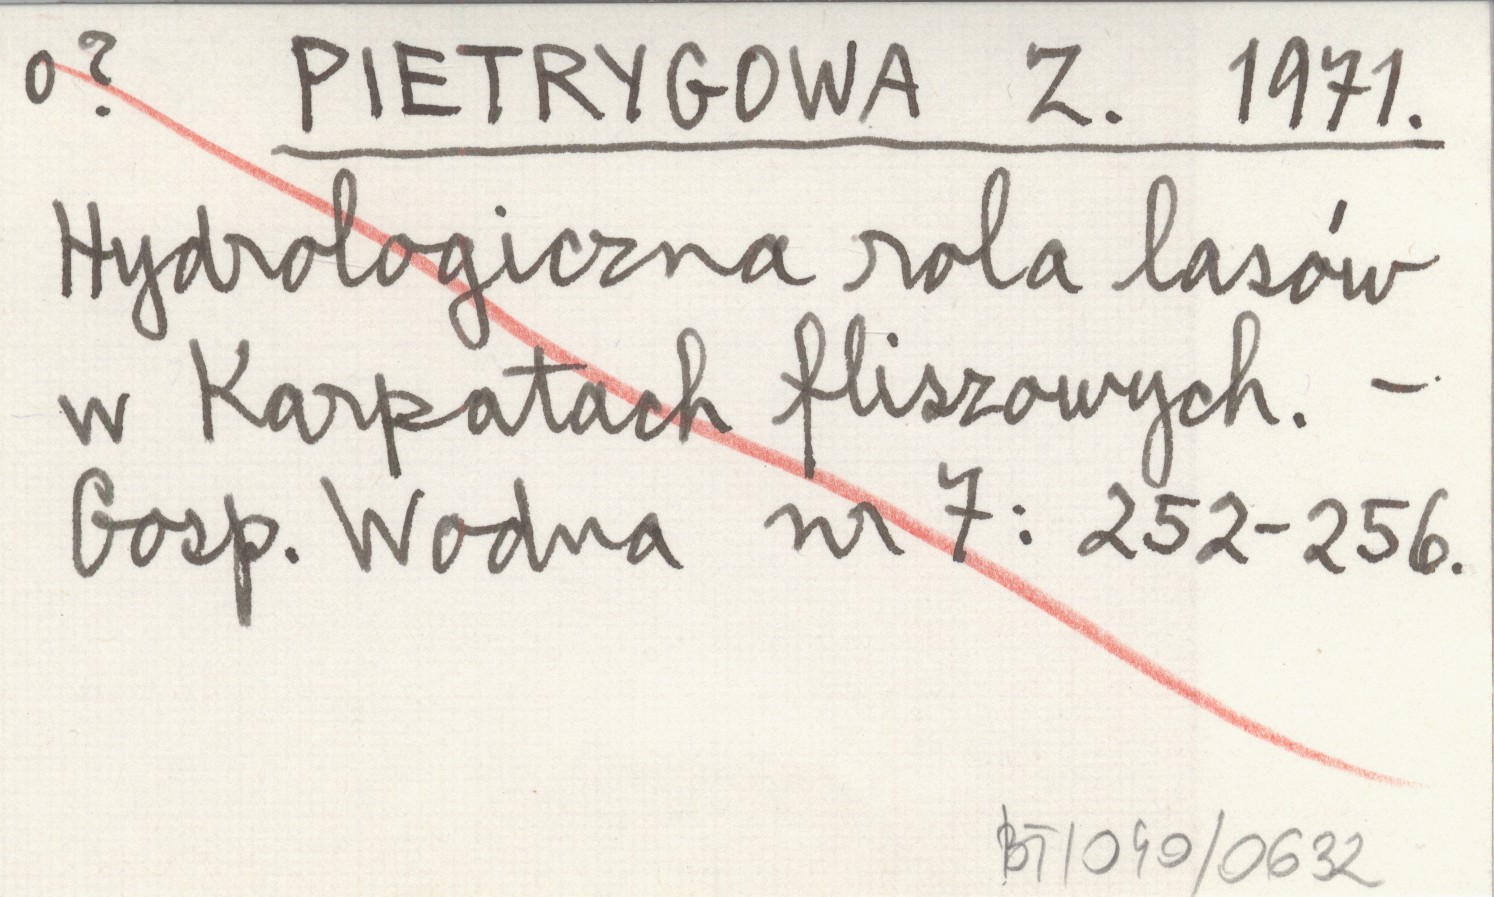 o? PIETRYGOWA Z. 1971.
Hydrologiczna rola lasów
w Karpatach fliszowych. –
Gosp. Wodna nr 7: 252-256.
BT/040/0632